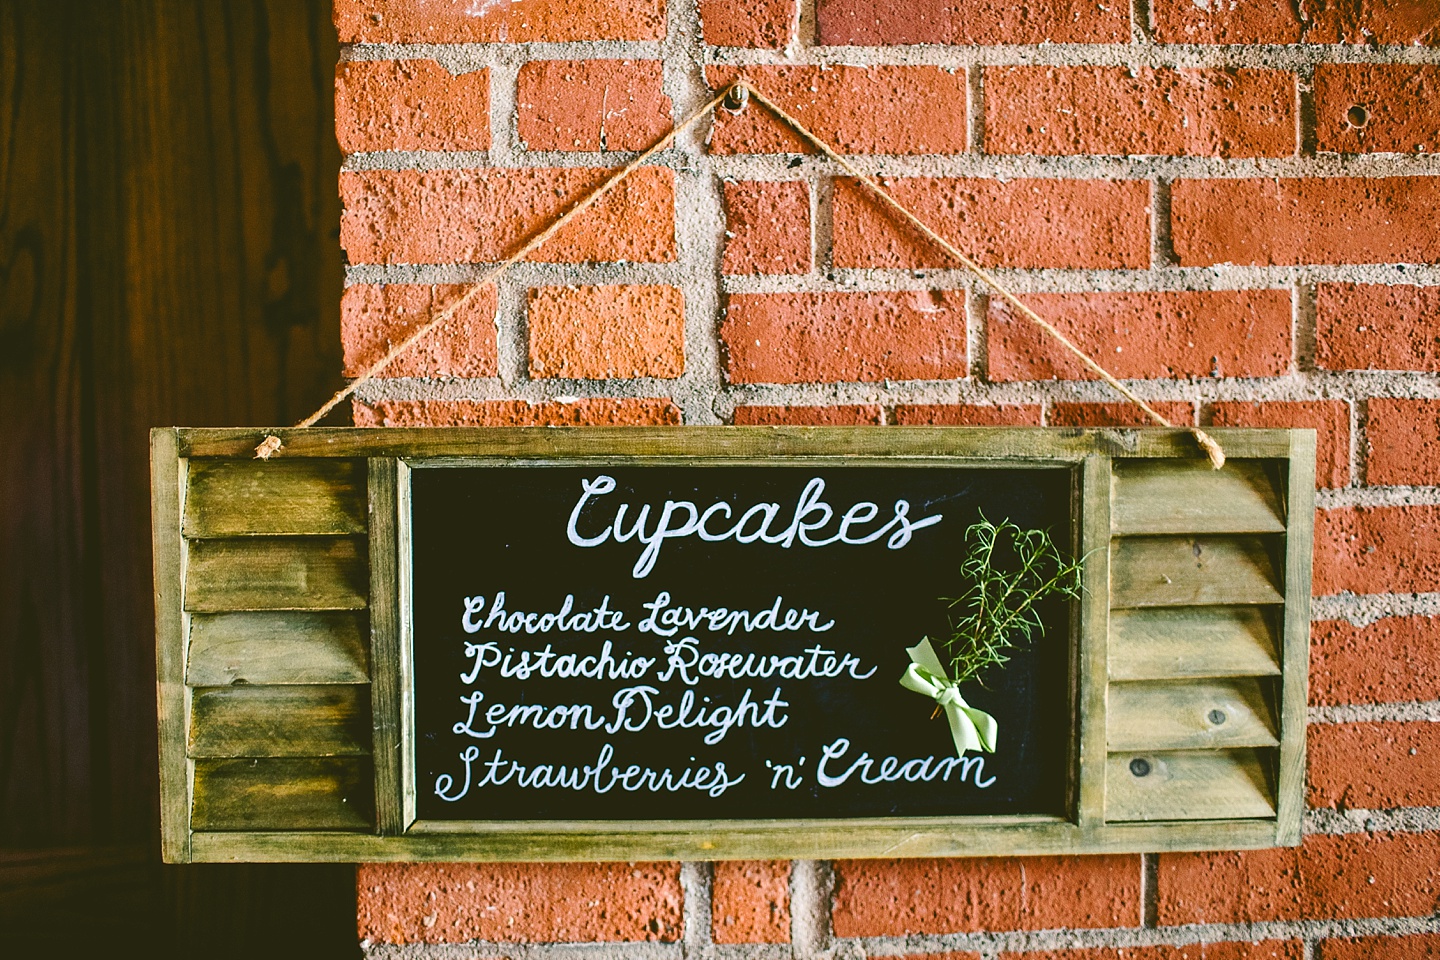 Cupcakes
Chocolate Lavender
Pistachio Rosewater
Lemon Delight
Strawberries 'n' Cream